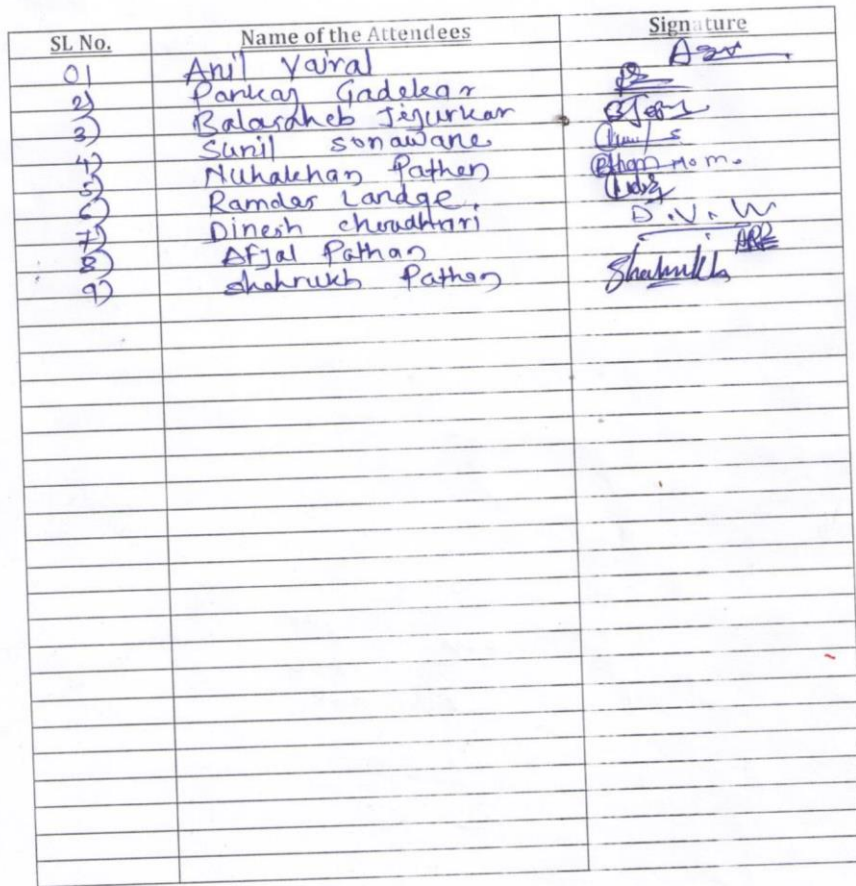 SL No. Name of the Attendees Signature
01 Anil Vairal
2) Pankaj Gadekar
3) Balasaheb Jejurkar
4) Sunil sonawane
5) Nuhakhan Pathan
6) Ramdas Landge
7) Dinesh choudhari D.V.W
8) Afjal Pathan
9) shahrukh Pathan Shahrukh